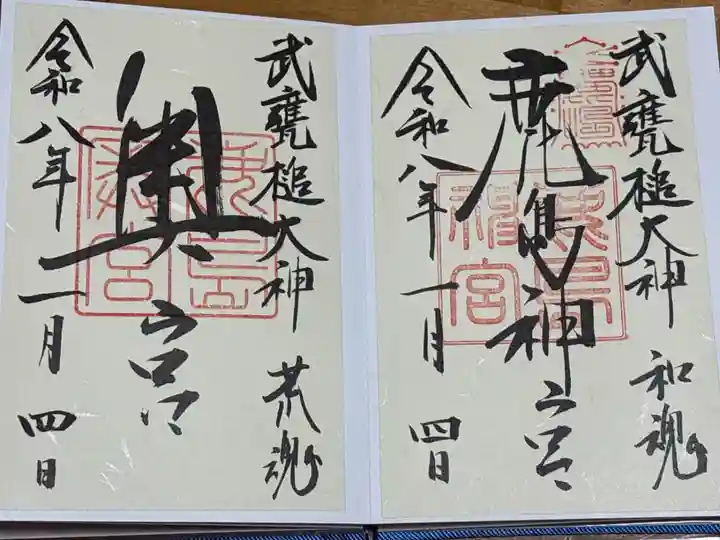 武甕槌大神 和魂
鹿島神宮
令和八年一月四日
武甕槌大神 荒魂
奥宮
令和八年一月四日